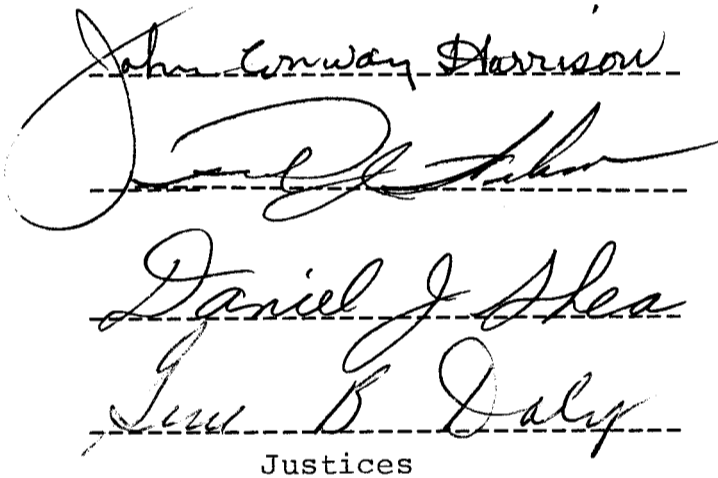 John Conway Harrison
Daniel J Shea
Gene B Daly
Justices